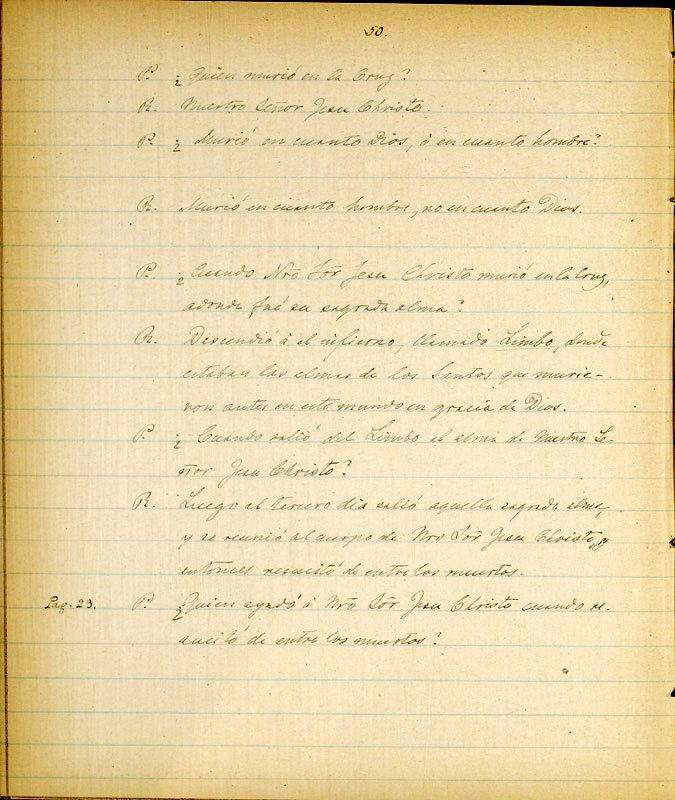 50.
P. ¿Quien murió en la Cruz?
R. Nuestro Señor Jesu Christo.
P. ¿Murió en cuanto Dios, ó en cuanto hombre?
R. Murió en cuanto hombre, no en cuanto Dios.
P. ¿Cuando Nrō Sōr Jesu Christo murió en la Cruz,
adonde fué su sagrada alma?
R. Descendió á el infierno, llamado Limbo, donde
estaban las almas de los Santos que murie-
ron antes en este mundo en gracia de Dios.
P. ¿Cuando salió del Limbo el alma de Nuestro Se-
ñor Jesu Christo?
R. Luego al tercero dia salió aquella sagrada alma,
y se reunió al cuerpo de Nro Sōr Jesu Christo, y
entonces resucitó de entre los muertos.
Pag. 23. P. ¿Quien ayudó á Nrō Sōr Jesu Christo cuando re-
sucitó de entre los muertos?